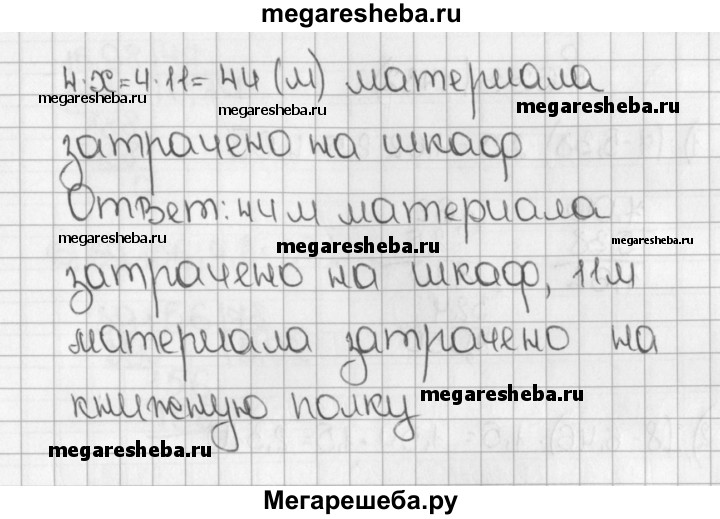 megaresheba.ru
4·x=4·11=44 (м) материала
megaresheba.ru megaresheba.ru megaresheba.ru
затрачено на шкаф
Ответ: 44 м материала
megaresheba.ru megaresheba.ru megaresheba.ru
затрачено на шкаф, 11м
материала затрачено на
книжную полку
megaresheba.ru
megaresheba.ru
Мегарешеба.ру